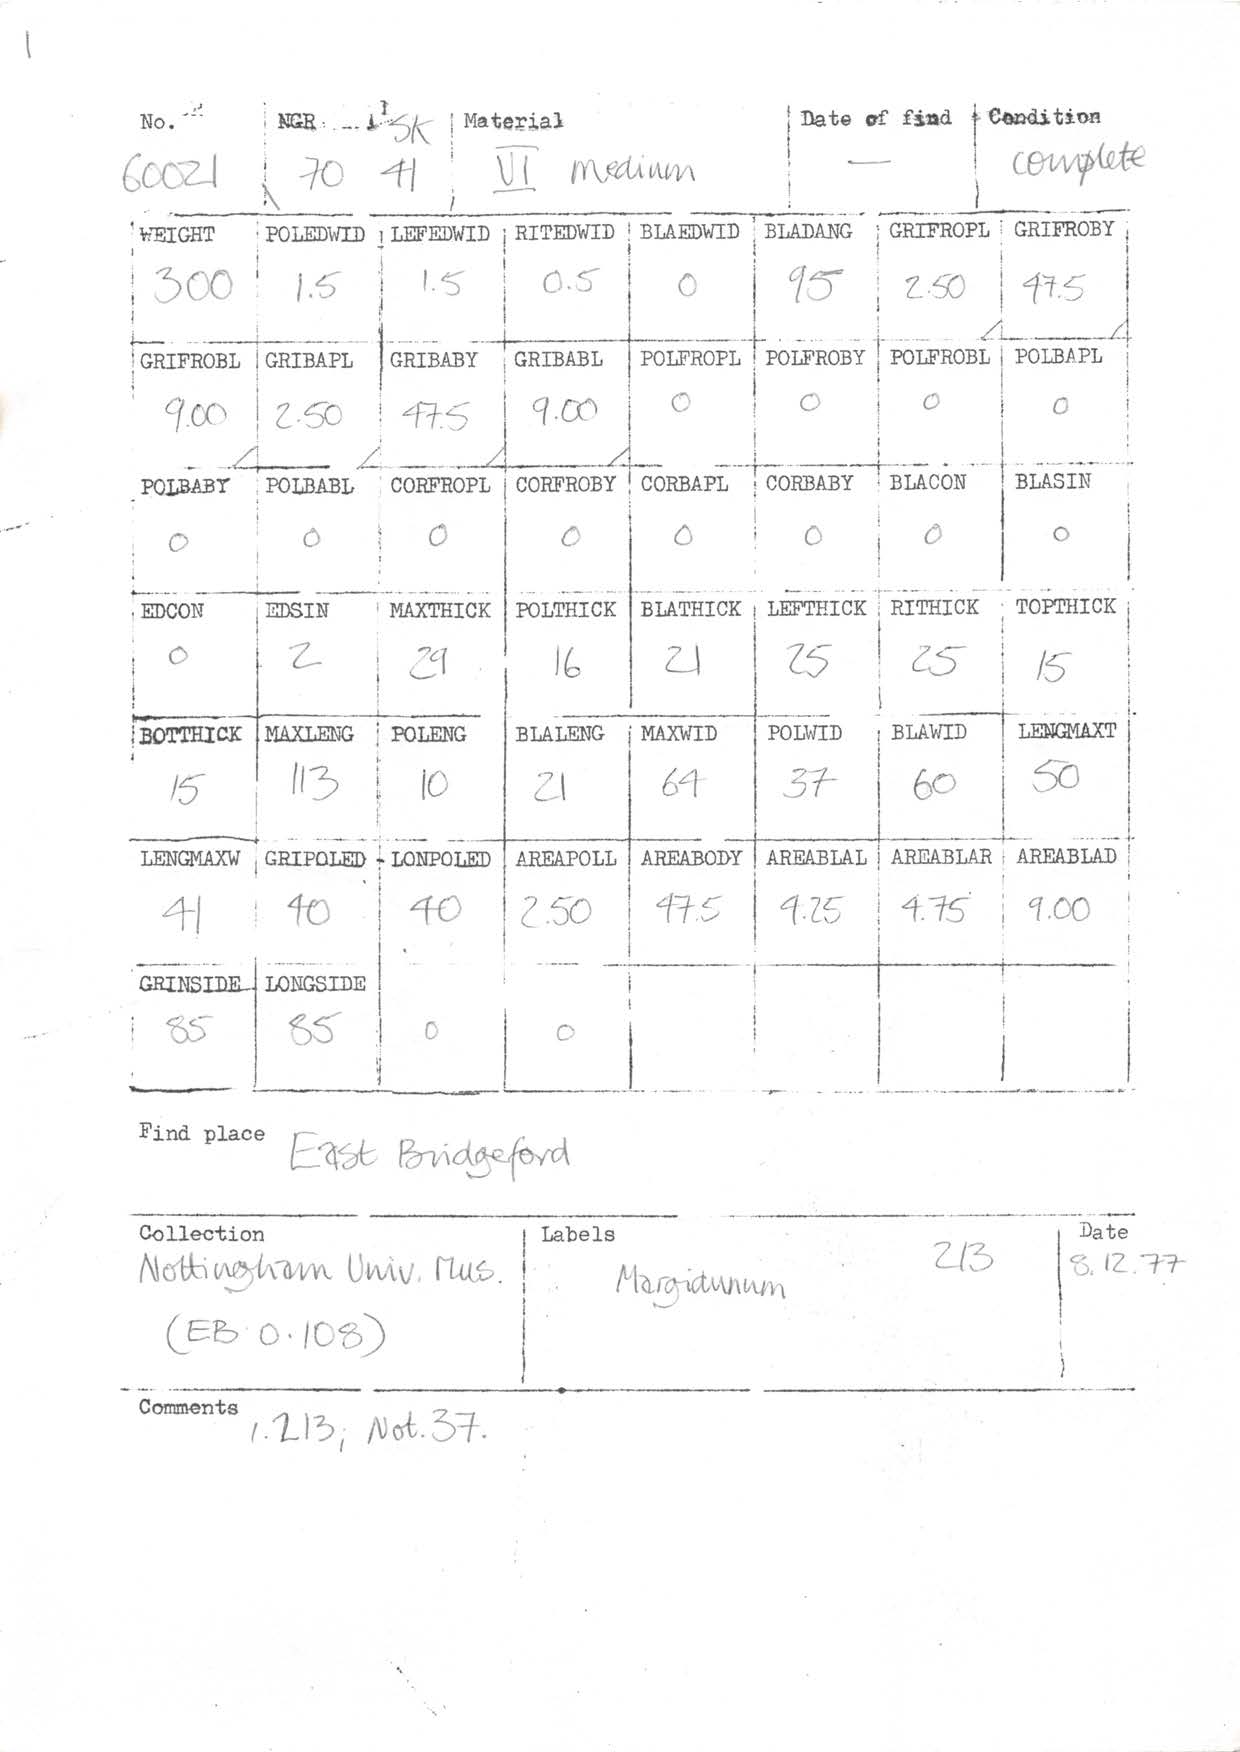 1
No. NGR SK Material Date of find Condition
60021 70 41 VI medium — complete
WEIGHT POLEDWID LEFEDWID RITEDWID BLAEDWID BLADANG GRIFROPL GRIFROBY
300 1.5 1.5 0.5 0 95 2.50 47.5
GRIFROBL GRIBAPL GRIBABY GRIBABL POLFROPL POLFROBY POLFROBL POLBAPL
9.00 2.50 47.5 9.00 0 0 0 0
POLBABY POLBABL CORFROPL CORFROBY CORBAPL CORBABY BLACON BLASIN
0 0 0 0 0 0 0 0
EDCON EDSIN MAXTHICK POLTHICK BLATHICK LEFTHICK RITHICK TOPTHICK
0 2 29 16 21 25 25 15
BOTTHICK MAXLENG POLENG BLALENG MAXWID POLWID BLAWID LENGMAXT
15 113 10 21 64 37 60 50
LENGMAXW GRIPOLED LONPOLED AREAPOLL AREABODY AREABLAL AREABLAR AREABLAD
41 40 40 2.50 47.5 4.25 4.75 9.00
GRINSIDE LONGSIDE
85 85 0 0
Find place East Bridgeford
Collection Labels Date
Nottingham Univ. Mus. Margidunum 213 8.12.77
(EB 0.108)
Comments 1.213; Not.37.